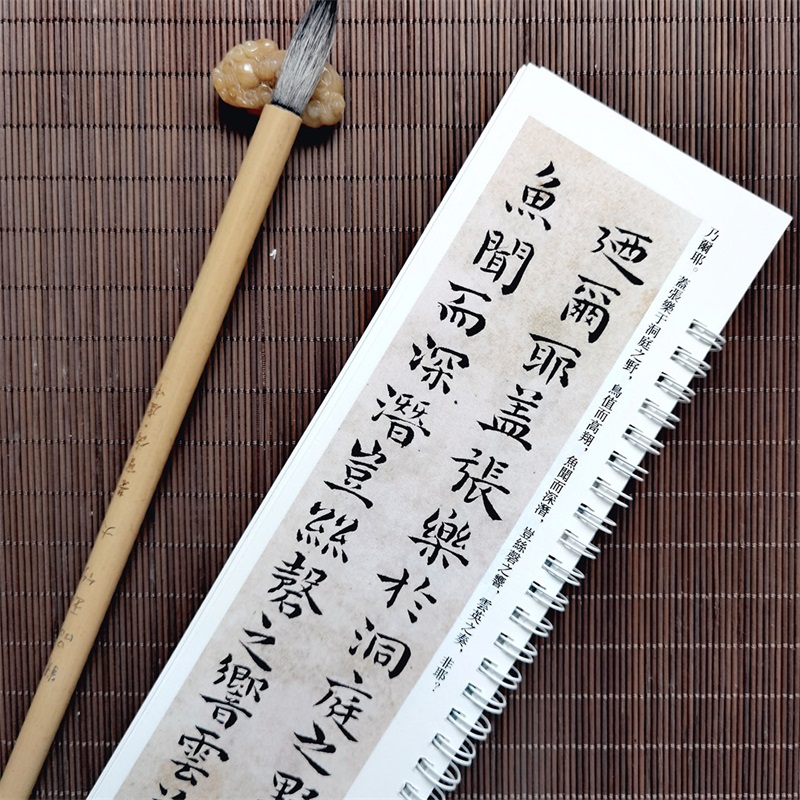 乃爾耶。蓋張樂于洞庭之野，鳥值而高翔，魚聞而深潛，豈絲磬之響，雲英之奏，非耶？
廼爾耶盖張樂於洞庭之野
魚聞而深潛豈絲磬之響雲英